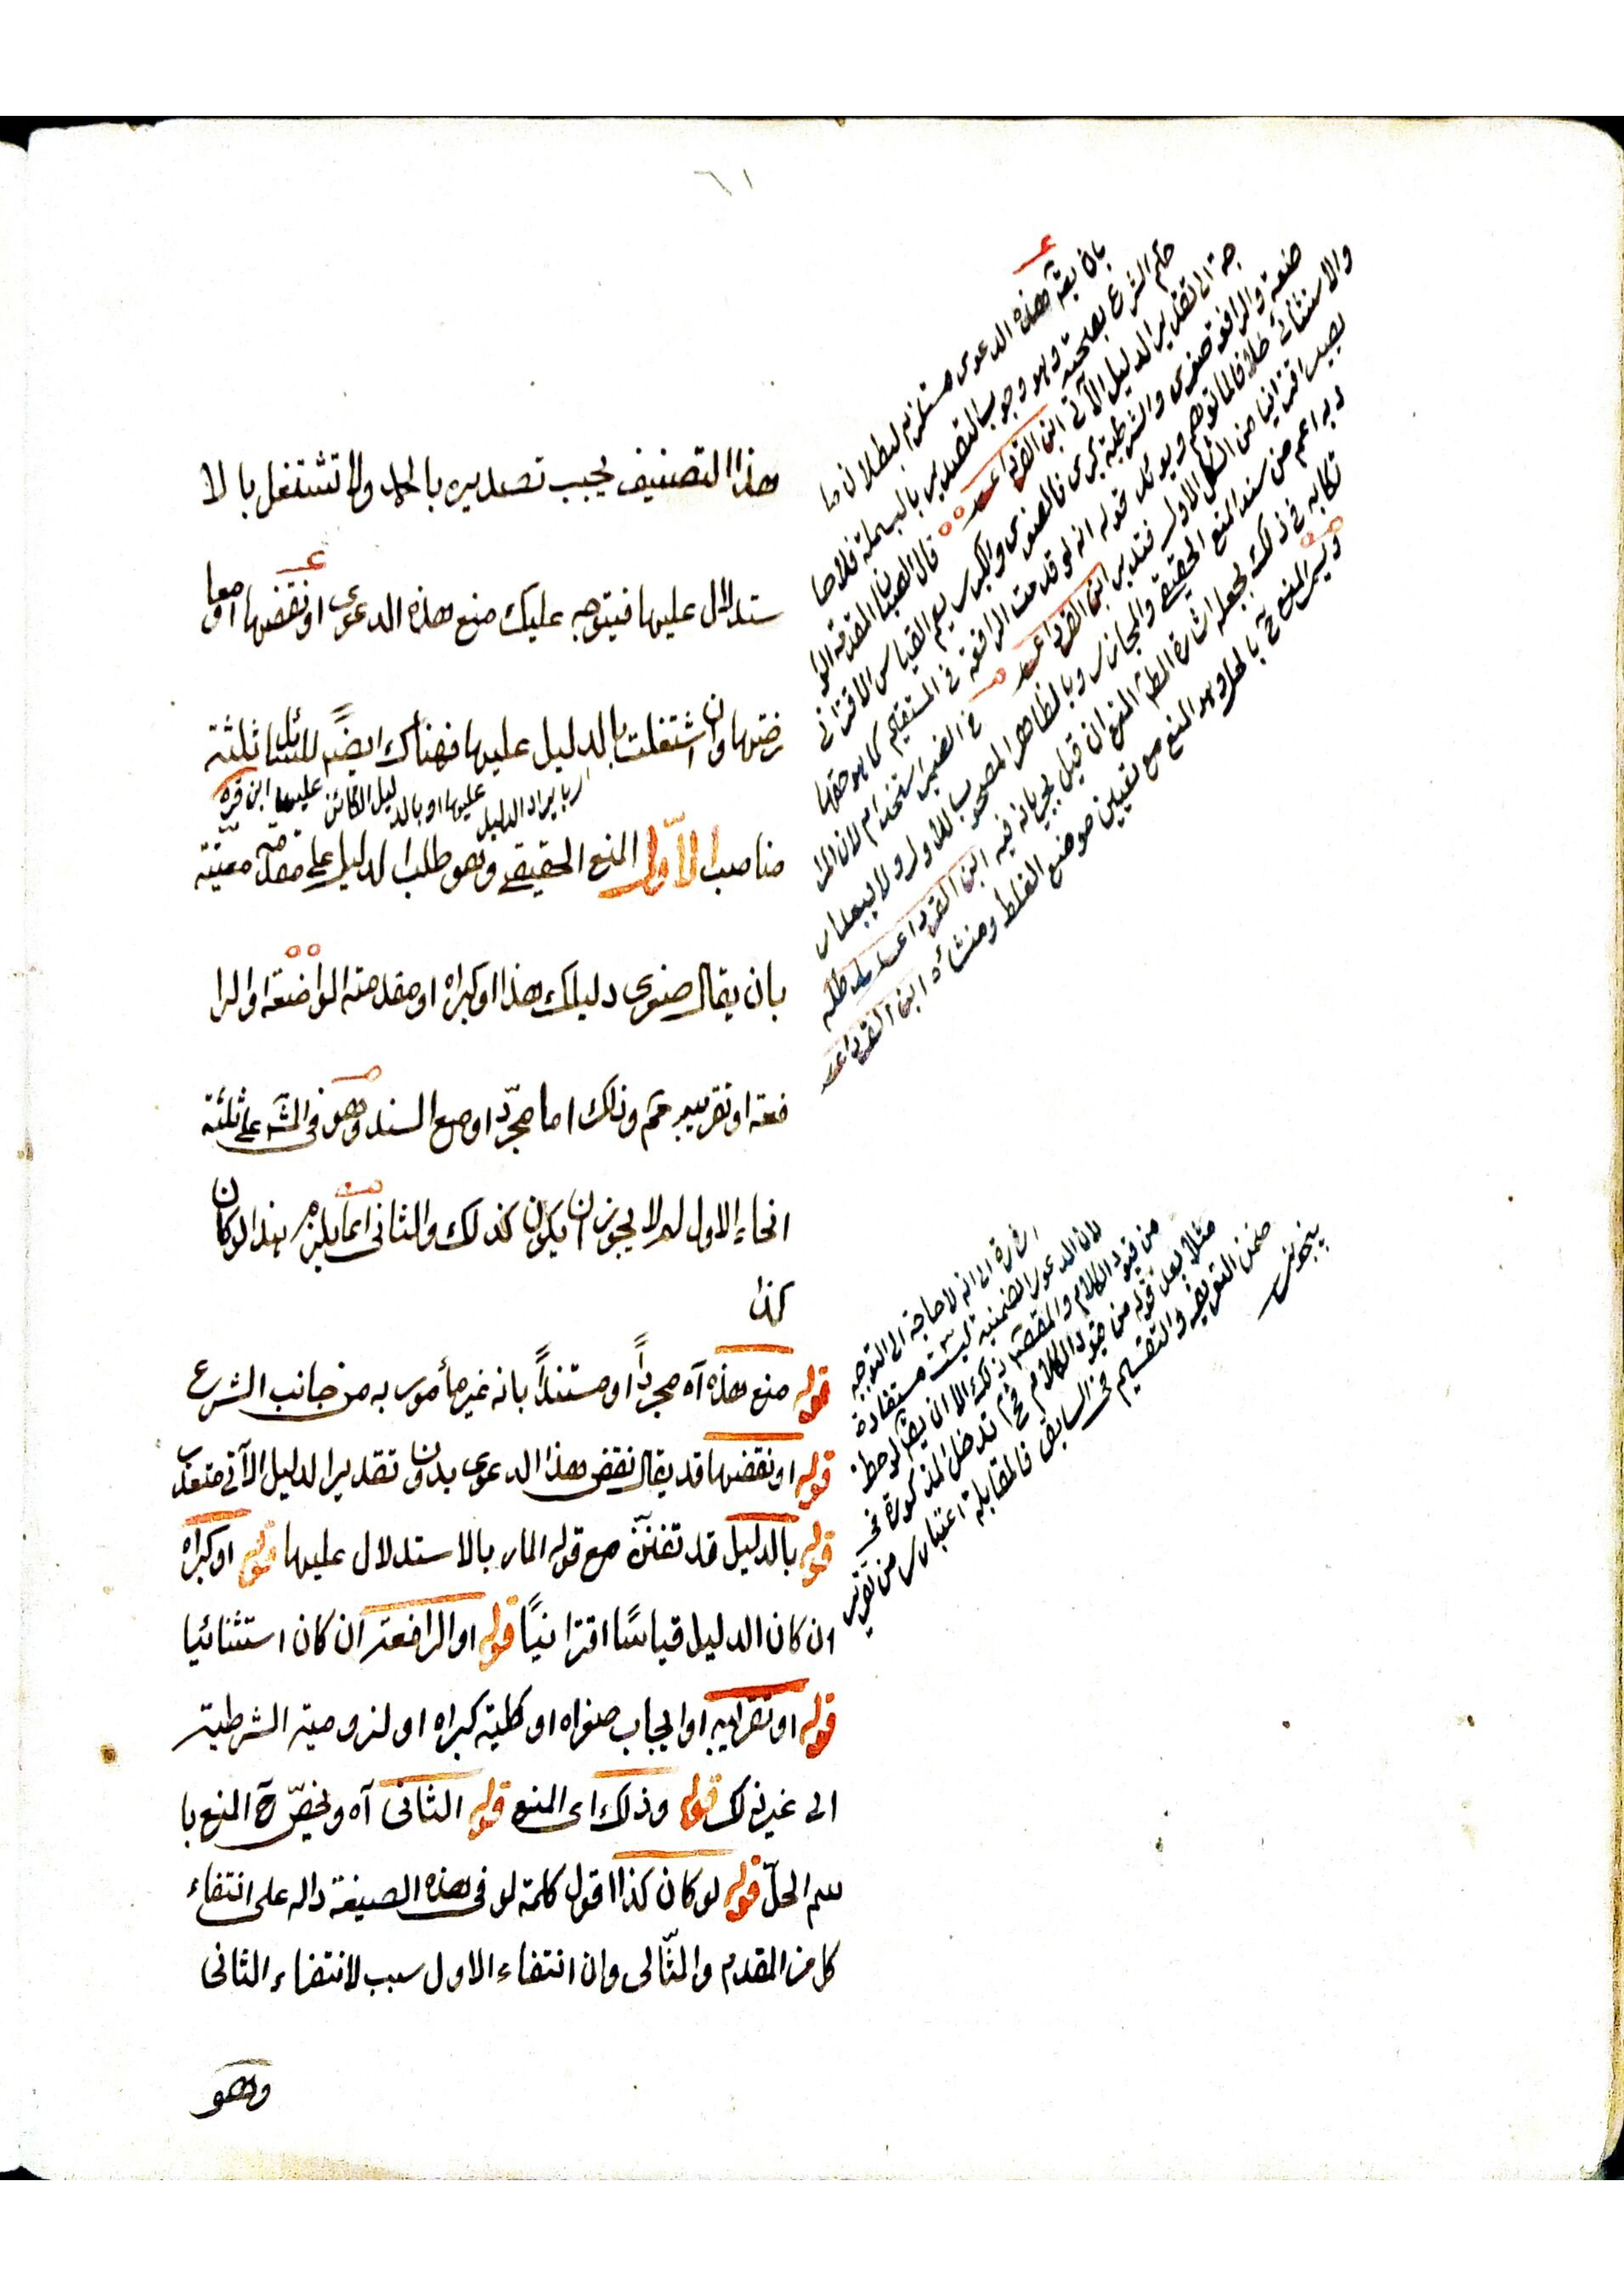 ٦١
هذا التصنيف يجب تصديره بالحمد ولا تشتغل بالا
ستدلال عليها فيتوجه عليك منع هذه الدعوى او نقضها او معا
رضتها وان اشتغلت بالدليل عليها فهناك ايضًا للسائل ثلثة
ى بايراد الدليل عليها او بالدليل الكائن عليها ابن قره
مناصب الاول المنع الحقيقي وهو طلب الدليل على مقدمة معينة
بان يقال صغرى دليلك هذا او كبراه او مقدمته الواضعة او الرا
فعة او تقريبه مم وذلك اما مجرّد او مع السند وهو في المش على ثلثة
انحاء الاول لم لا يجوز ان يكون كذلك والثاني انما يلزم هذا لو كان
كذا
قوله منع هذه آه مجردًا او مستندًا بانه غير مأمور به من جانب الشرع
قوله او نقضها قد يقال نقض هذا الدعوى بدون تقدير الدليل الآتي متعذر
قوله بالدليل قد تفنن مع قوله المار بالاستدلال عليها قوله او كبراه
ان كان الدليل قياسًا اقترانيًا قوله او الرافعة ان كان استثنائيا
قوله او تقريبه او ايجاب صغراه او كلية كبراه او لزومية الشرطية
الى غير ذلك قوله وذلك اى المنع قوله الثاني آه ويخصّ ح المنع با
سم الحلّ قوله لو كان كذا اقول كلمة لو في هذه الصيغة داله على انتفاء
كل من المقدم والتّالى وان انتفاء الاول سبب لانتفاء الثاني
وهو
بان يقـ هذه الدعوى مستلزم لبطلان ما
حكم الشرع بصحته وهو وجوب التصدير بالبسملة فلا حا
جة الى تقدير الدليل الآتي ابن القرداغي
قال الصبان المقدمة الوا
ضعة والرافعة صغرى والشرطية كبرى فالصغرى والكبرى يعم القياس الاقتراني
والاستثنائي خلافا لما توهم ويؤيد قوله انه لو قدمت الرافعة في المستقيم كما هو حقها
يصير اقترانيا من الشكل الاول فتدبر ابن القرداغي
في الضمير استخدام لان المرا
د به اعم من سند المنع الحقيقي والمجازى وبالظاهر المصحوب للاول ولا يبعد ار
تكابه في ذلك بجعله اشارة المطلق المنع ان قيل بجريانه فيه ابن القرداغي مد ظله
ويسمى المنع ح بالحل وهو المنع مع تعيين موضع الغلط ومنشأه ابن القرداغي
اشارة الى انه لا حاجة الى التوجيه
لان الدعوى الضمنية ليست مستفادة
من قيود الكلام والمقصـ ذلك الا ان يقـ لوحظ
مثلا بعد قوله من قيود الكلام فح تدخل المذكورة في
ضمن التعريف والتقسيم في السابق فالمقابلة اعتبارى من تقرير
بينجوينى